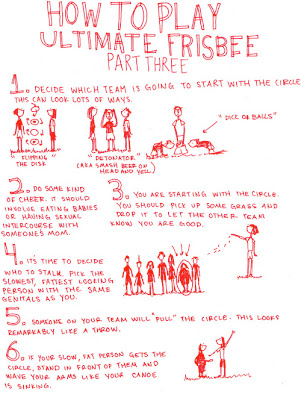 HOW TO PLAY
ULTIMATE FRISBEE
PART THREE
1. DECIDE WHICH TEAM IS GOING TO START WITH THE CIRCLE
THIS CAN LOOK LOTS OF WAYS.
"FLIPPING"
THE DISK
"DETONATOR"
(AKA SMASH BEER ON
HEAD AND YELL)
"DICE OR BALLS"
2. DO SOME KIND
OF CHEER. IT SHOULD
INVOLVE EATING BABIES
OR HAVING SEXUAL
INTERCOURSE WITH
SOMEONE'S MOM.
3. YOU ARE STARTING WITH THE CIRCLE.
YOU SHOULD PICK UP SOME GRASS AND
DROP IT TO LET THE OTHER TEAM
KNOW YOU ARE GOOD.
4. ITS TIME TO DECIDE
WHO TO STALK. PICK THE
SLOWEST, FATTEST LOOKING
PERSON WITH THE SAME
GENITALS AS YOU.
5. SOMEONE ON YOUR TEAM WILL "PULL" THE CIRCLE. THIS LOOKS
REMARKABLY LIKE A THROW.
6. IF YOUR SLOW, FAT PERSON GETS THE
CIRCLE, STAND IN FRONT OF THEM AND
WAVE YOUR ARMS LIKE YOUR CANOE
IS SINKING.